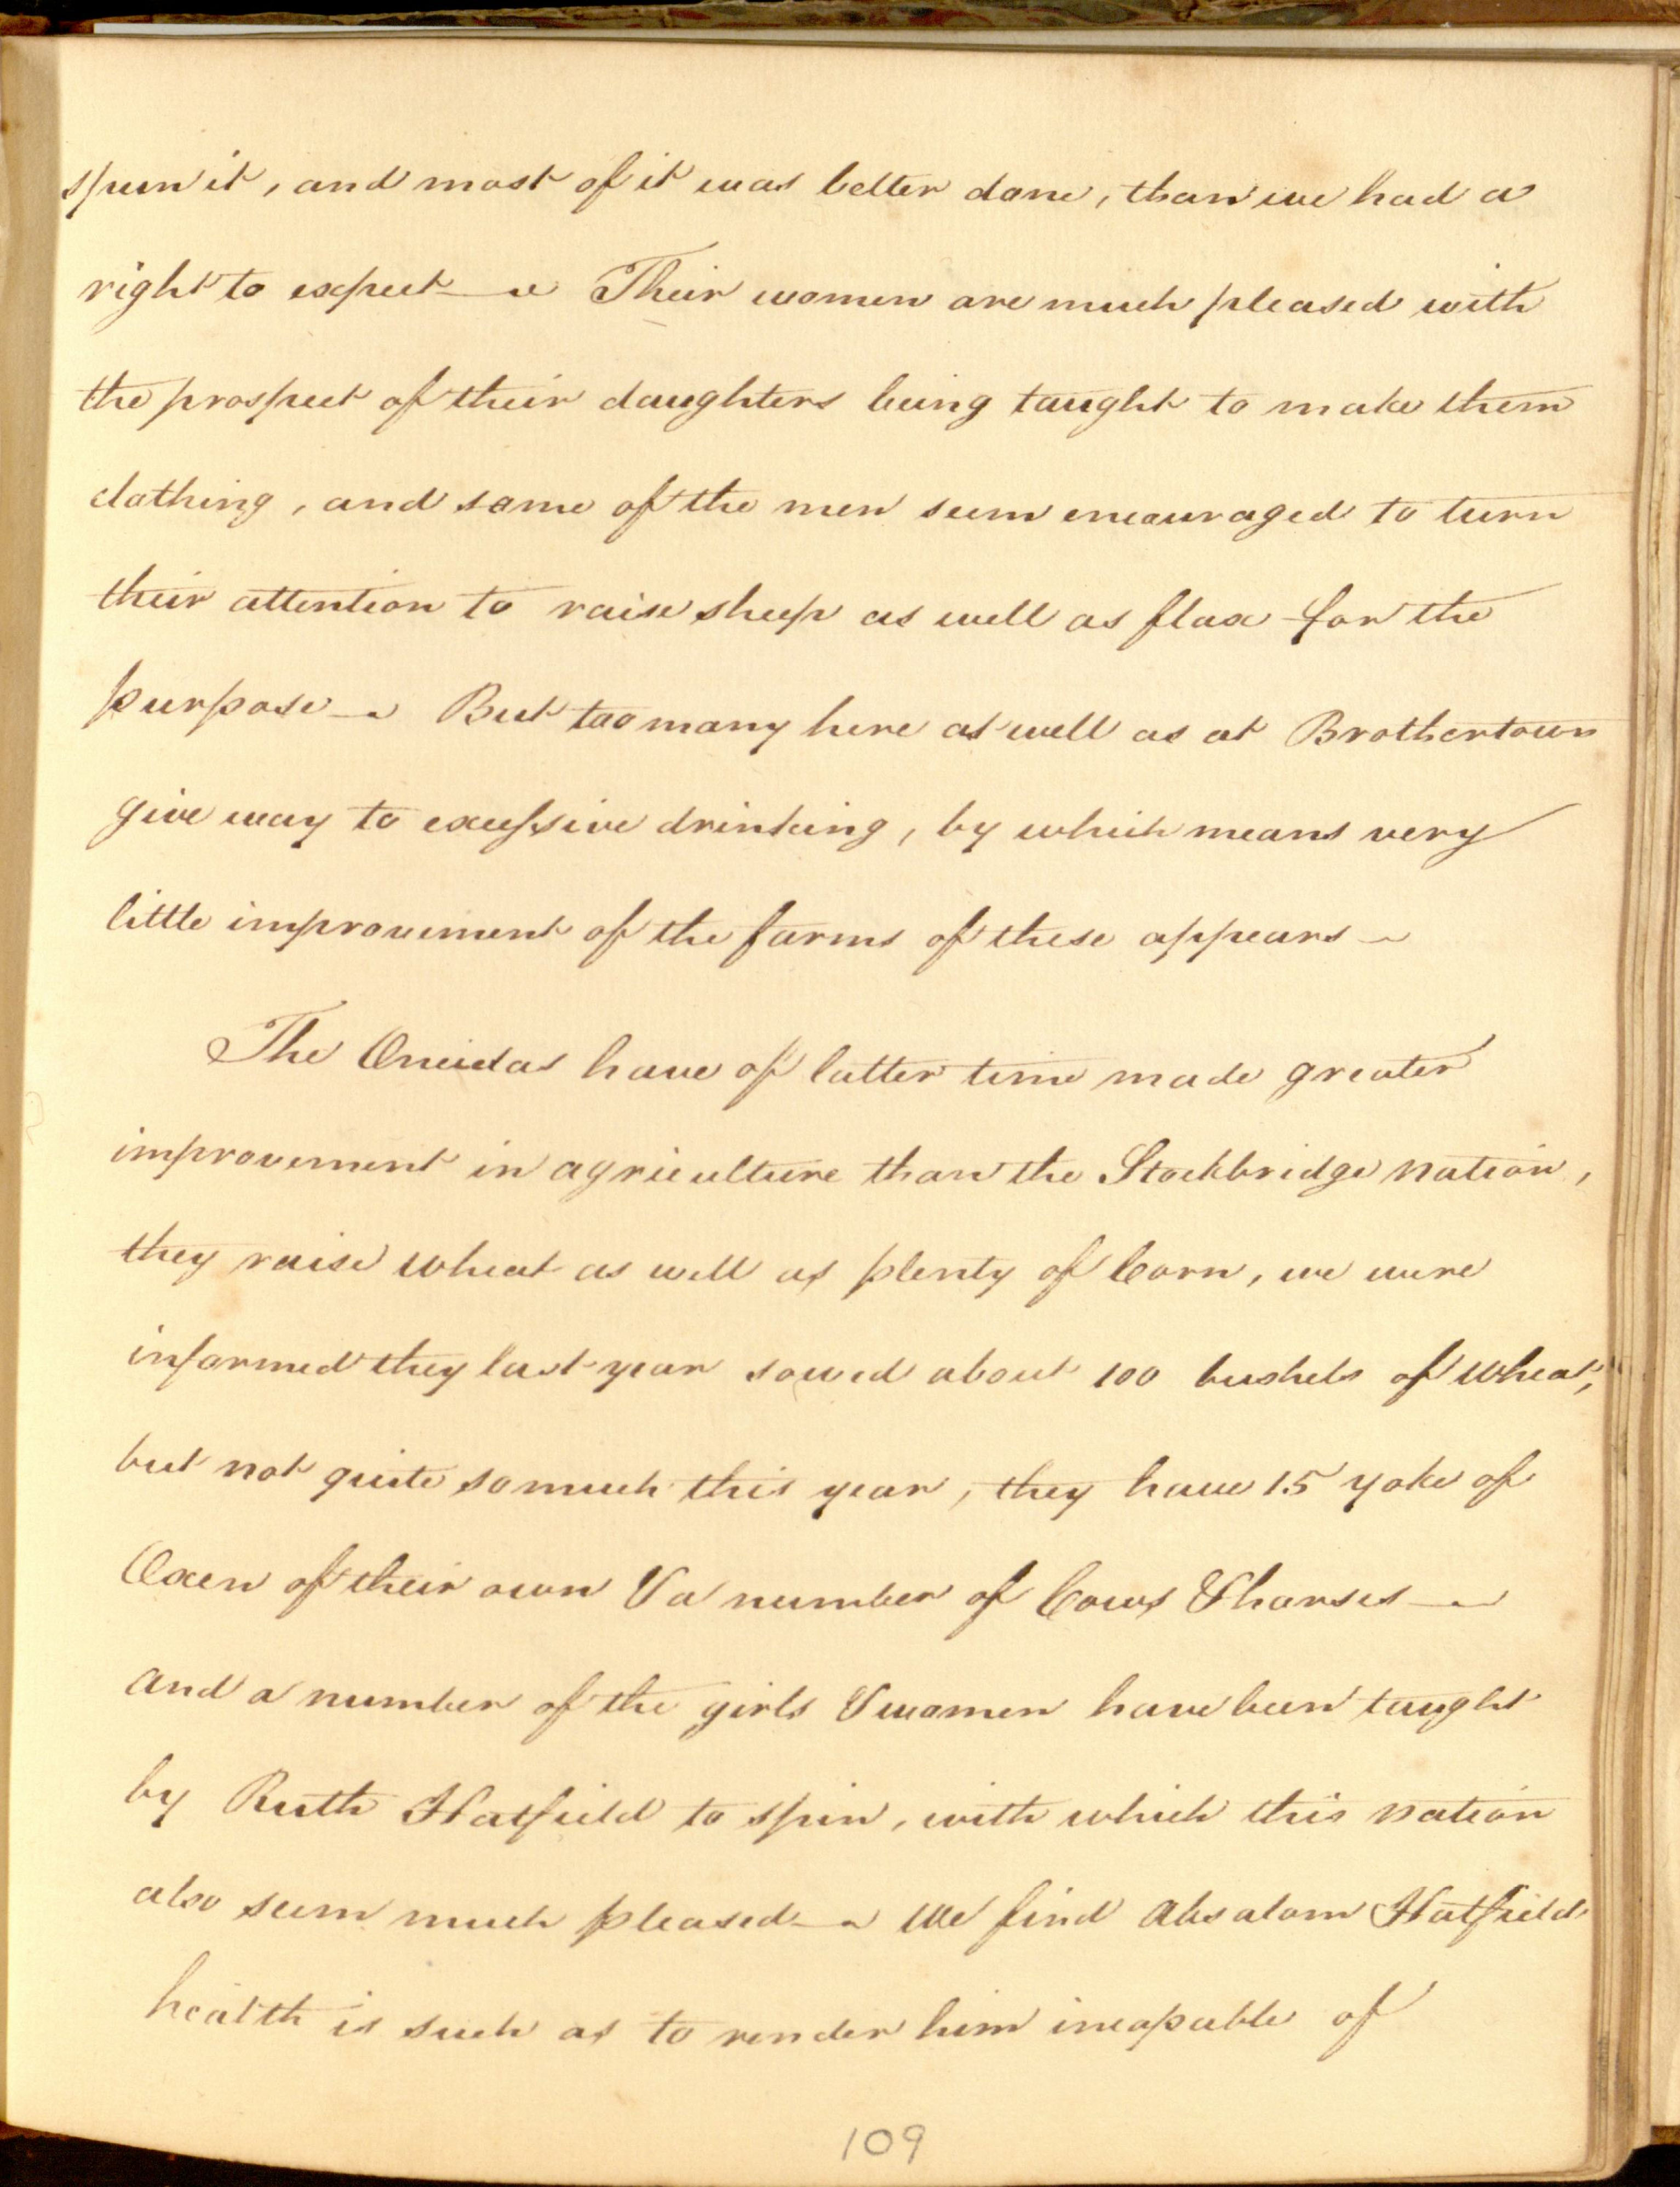 spun it, and most of it was better done, than we had a
right to expect — Their women are much pleased with
the prospect of their daughters being taught to make them
clothing, and some of the men seem encouraged to turn
their attention to raise sheep as well as flax for the
purpose — But too many here as well as at Brothertown
give way to excessive drinking, by which means very
little improvement of the farms of these appears —
The Oneidas have of latter time made greater
improvement in agriculture than the Stockbridge nation,
they raise wheat as well as plenty of Corn, we were
informed they last year sowed about 100 bushels of wheat,
but not quite so much this year, they have 15 yoke of
Oxen of their own & a number of Cows & horses —
and a number of the girls & women have been taught
by Ruth Hatfield to spin, with which this nation
also seem much pleased — We find Absalom Hatfields
health is such as to render him incapable of
109